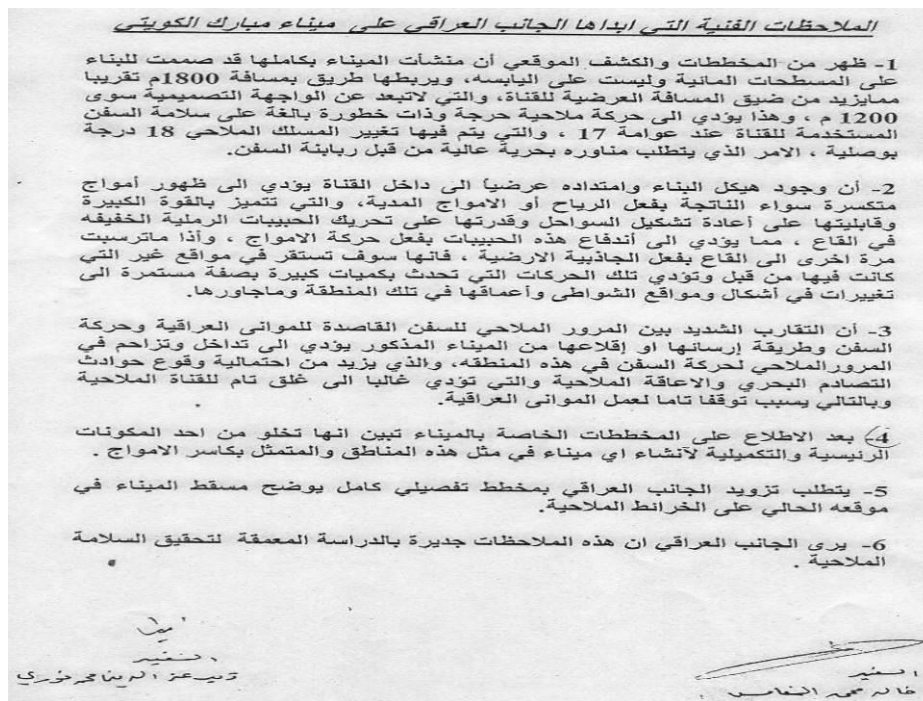 الملاحظات الفنية التي ابداها الجانب العراقي على ميناء مبارك الكويتي
1- ظهر من المخططات والكشف الموقعي أن منشأت الميناء بكاملها قد صممت للبناء
على المسطحات المائية وليست على اليابسه، ويربطها طريق بمسافة 1800م تقريبا
ممايزيد من ضيق المسافة العرضية للقناة، والتي لاتبعد عن الواجهة التصميمية سوى
1200 م ، وهذا يؤدي الى حركة ملاحية حرجة وذات خطورة بالغة على سلامة السفن
المستخدمة للقناة عند عوامة 17 ، والتي يتم فيها تغيير المسلك الملاحي 18 درجة
بوصلية ، الامر الذي يتطلب مناوره بحرية عالية من قبل ربابنة السفن.
2- أن وجود هيكل البناء وامتداده عرضياً الى داخل القناة يؤدي الى ظهور أمواج
متكسرة سواء الناتجة بفعل الرياح أو الامواج المدية، والتي تتميز بالقوة الكبيرة
وقابليتها على أعادة تشكيل السواحل وقدرتها على تحريك الحبيبات الرملية الخفيفه
في القاع ، مما يؤدي الى أندفاع هذه الحبيبات بفعل حركة الامواج ، وأذا ماترسبت
مرة اخرى الى القاع بفعل الجاذبية الارضية ، فانها سوف تستقر في مواقع غير التي
كانت فيها من قبل وتؤدي تلك الحركات التي تحدث بكميات كبيرة بصفة مستمرة الى
تغييرات في أشكال ومواقع الشواطى وأعماقها في تلك المنطقة وماجاورها.
3- أن التقارب الشديد بين المرور الملاحي للسفن القاصدة للموانى العراقية وحركة
السفن وطريقة إرسائها او إقلاعها من الميناء المذكور يؤدي الى تداخل وتزاحم في
المرورالملاحي لحركة السفن في هذه المنطقه، والذي يزيد من احتمالية وقوع حوادث
التصادم البحري والاعاقة الملاحية والتي تؤدي غالبا الى غلق تام للقناة الملاحية
وبالتالي يسبب توقفا تاما لعمل الموانى العراقية.
4- بعد الاطلاع على المخططات الخاصة بالميناء تبين انها تخلو من احد المكونات
الرئيسية والتكميلية لآنشاء اي ميناء في مثل هذه المناطق والمتمثل بكاسر الامواج .
5- يتطلب تزويد الجانب العراقي بمخطط تفصيلي كامل يوضح مسقط الميناء في
موقعه الحالي على الخرائط الملاحية.
6- يرى الجانب العراقي ان هذه الملاحظات جديرة بالدراسة المعمقة لتحقيق السلامة
الملاحية .
السفير
السفير